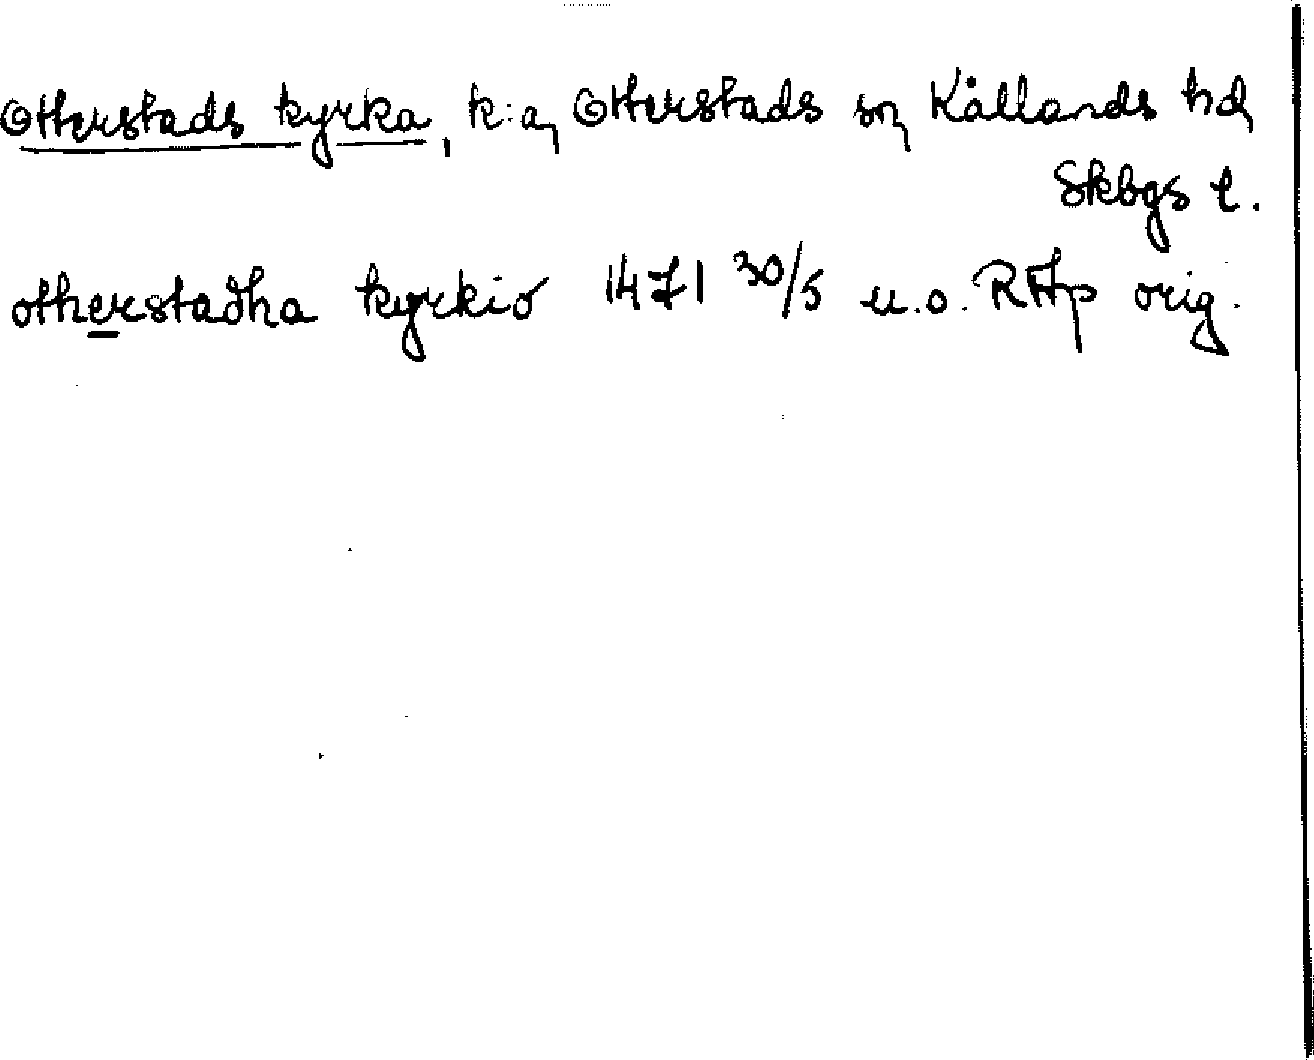 Otterstads kyrka, k:a, Otterstads sn, Kållands hd,
Skbgs l.
otherstadha kyrkio 1471 30/5 u.o. RAp orig.